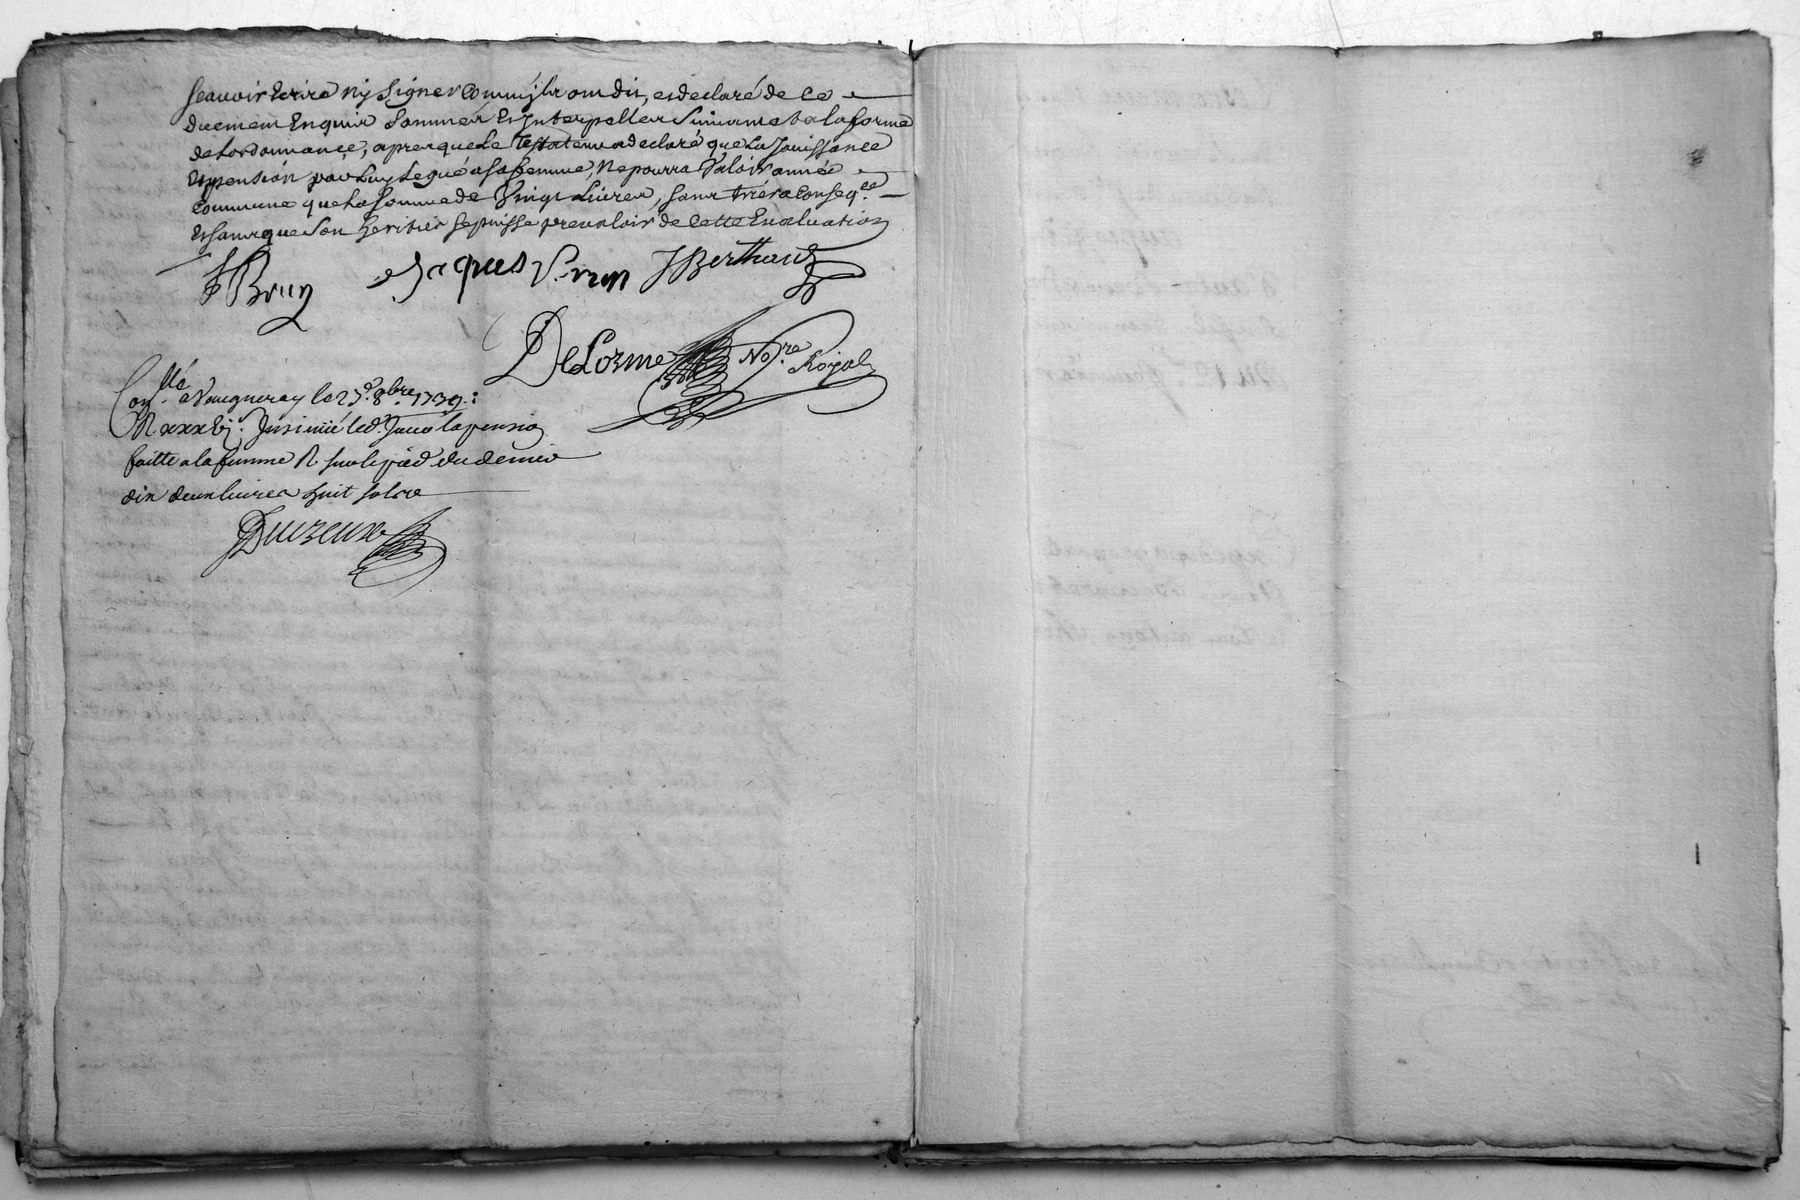 scavoir Ecrire ny signer Comm'ils ont dit, et declaré de Ce
duement Enquis Sommés Et Interpellés Suivant a la forme
de Lordonnance, apres que Le Testateur a declaré que La Jouissance
Et pension par Luy Legué a sa femme, Ne pourra Valoir année
Commune que La somme de Vingt Livres, sans tirer a Conseq.ce
Et sans que Son heritier se puisse prevaloir de Cette Evaluation
J Brun Jacques V JBerthaud
DeLorme No.re Royal
Con.llé a Vaugneray le 27e. 8bre. 1739:
R xxxvj s. Insinué led. Jour la pension
faitte a la femme R sur le pied du denier
dix deux livres huit sols
Duizeux